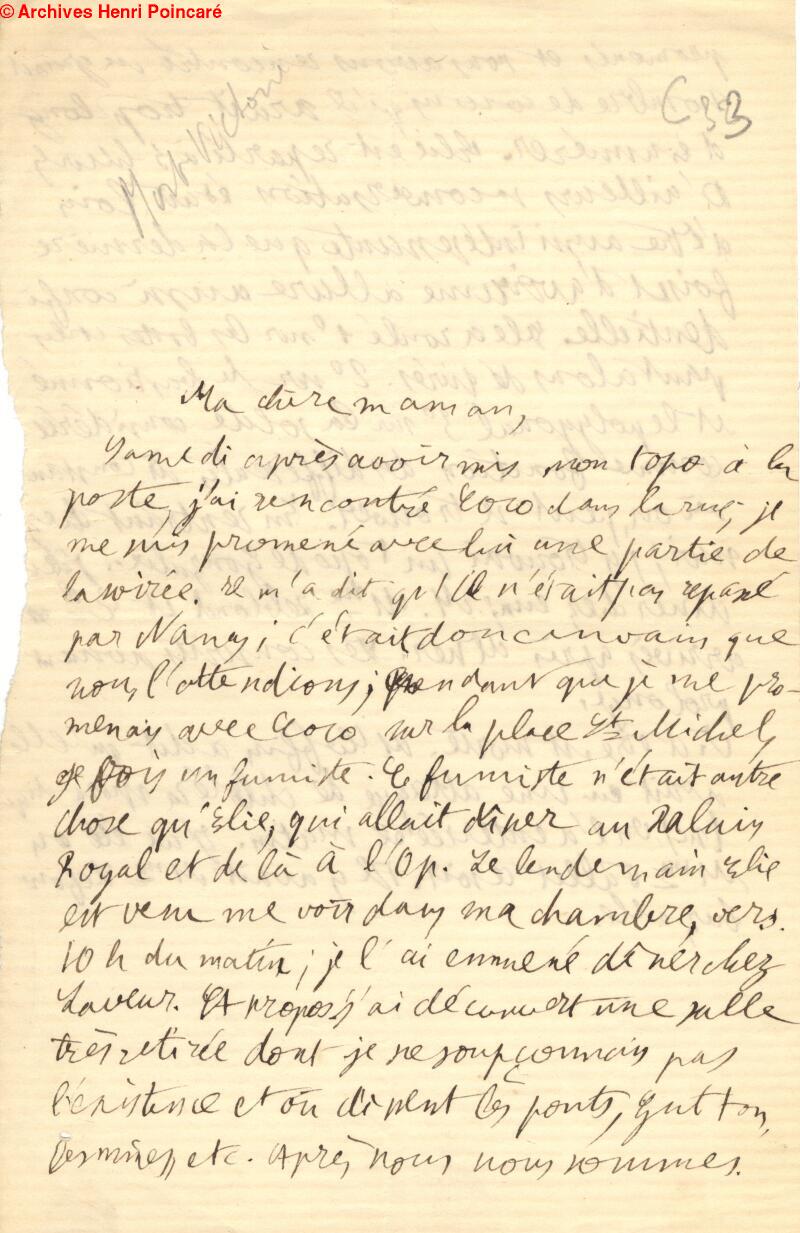 © Archives Henri Poincaré
C 33
Ma chère maman,
Samedi après avoir mis mon topo à la
poste, j'ai rencontré Coco dans la rue, je
me suis promené avec lui une partie de
la soirée. Il m'a dit qu'il n'était pas repassé
par Nancy; c'était donc en vain que
nous l'attendions; pendant que je me pro-
menais avec Coco sur la place St Michel,
je vois un fumiste. Ce fumiste n'était autre
chose qu'Élie, qui allait dîner au Palais
Royal et de là à l'Op. Le lendemain Élie
est venu me voir dans ma chambre, vers
10 h du matin; je l'ai emmené dîner chez
Laveur. A propos j'ai découvert une salle
très retirée dont je ne soupçonnais pas
l'existence et où dînent les ponts,
des mines, etc. Après nous nous sommes